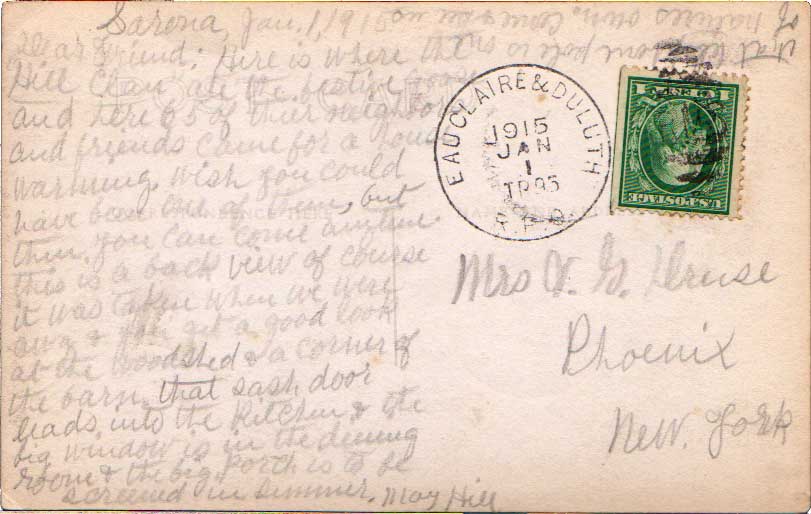 Sarona, Jan. 1, 1915
Dear Friend: Here is where the
Hill Clan ate the festive goose
and here 65 of their neighbors
and friends came for a house
warming. Wish you could
have been one of them, but
then you can come anytime.
this is a back view of course
it was taken when we were
away & you get a good look
at the woodshed & a corner of
the barn. that sash door
leads into the Kitchen & the
big window is in the dining
room & the big Porch is to be
screened in summer. May Hill
that tele pole is one
of natures own. come & see us
EAU CLAIRE & DULUTH
1915
JAN
1
R.P.O.
U.S. POSTAGE
Mrs V. G. Druse
Phoenix
New. York